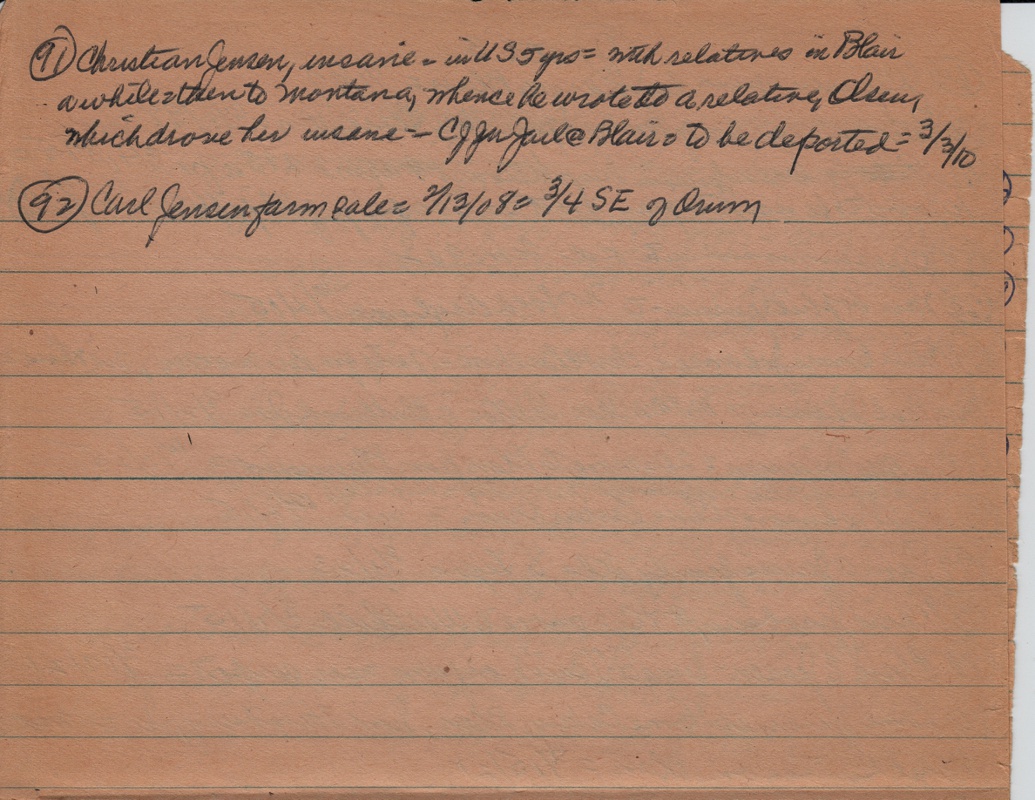 91) Christian Jensen, insane - in US 5 yrs = with relatives in Blair
awhile = then to Montana, whence he wrote to a relative, Olsen,
which drove her insane - CJ in Jail @ Blair = to be deported = 3/3/10
92) Carl Jensen farm sale = 2/13/08 = 3/4 SE of Orum